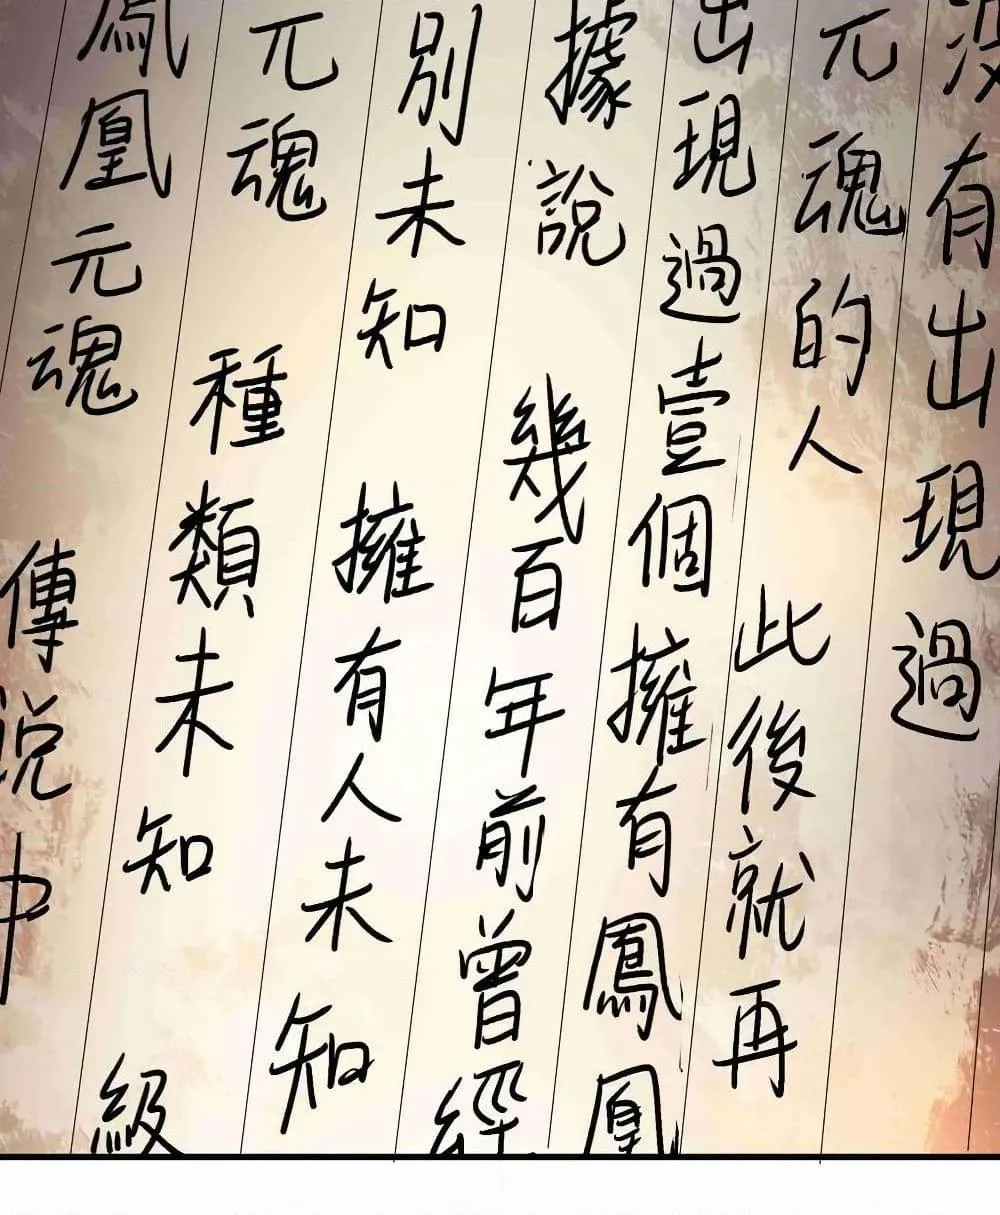 鳳凰元魂 傳说中
元魂 種類未知 級
別未知 擁有人未知
據說 幾百年前曾經
出現過壹個擁有鳳凰
元魂的人 此後就再
沒有出現過